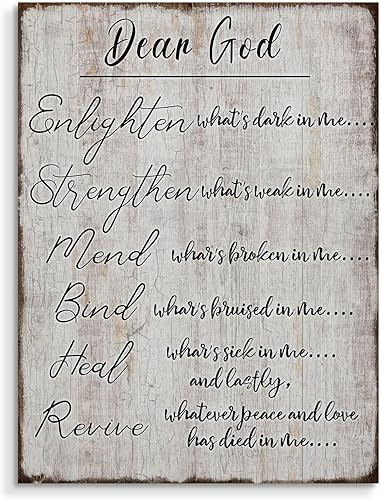 Dear God
Enlighten what's dark in me....
Strengthen what's weak in me....
Mend whar's broken in me....
Bind whar's bruised in me....
Heal whar's sick in me....
and lastly,
Revive whatever peace and love
has died in me....